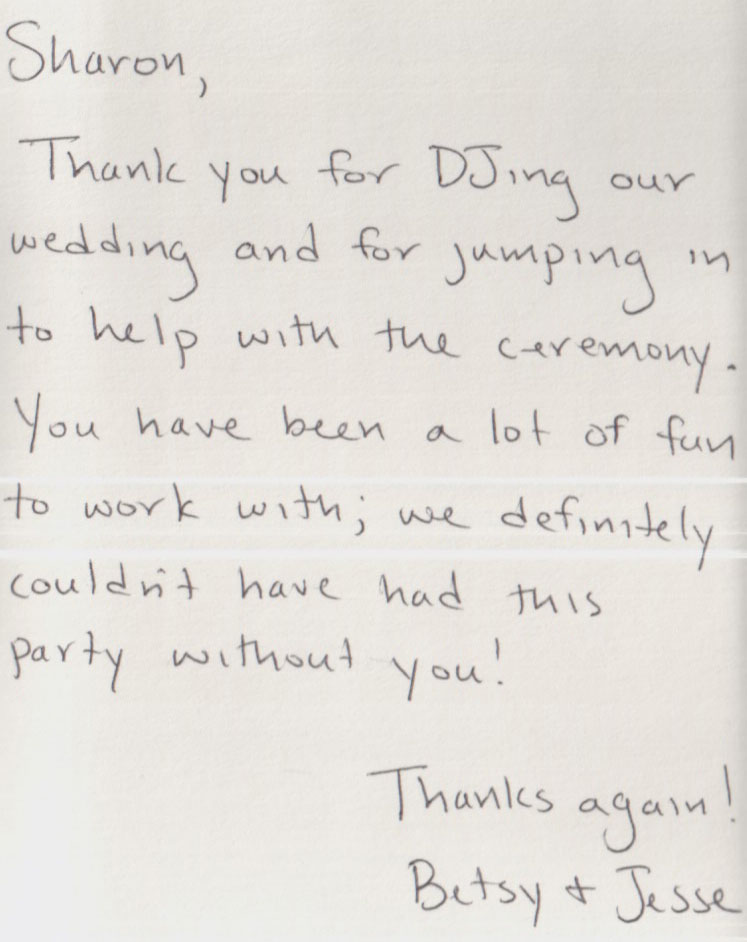 Sharon,
Thank you for DJing our
wedding and for jumping in
to help with the ceremony.
You have been a lot of fun
to work with; we definitely
couldn't have had this
party without you!
Thanks again!
Betsy + Jesse